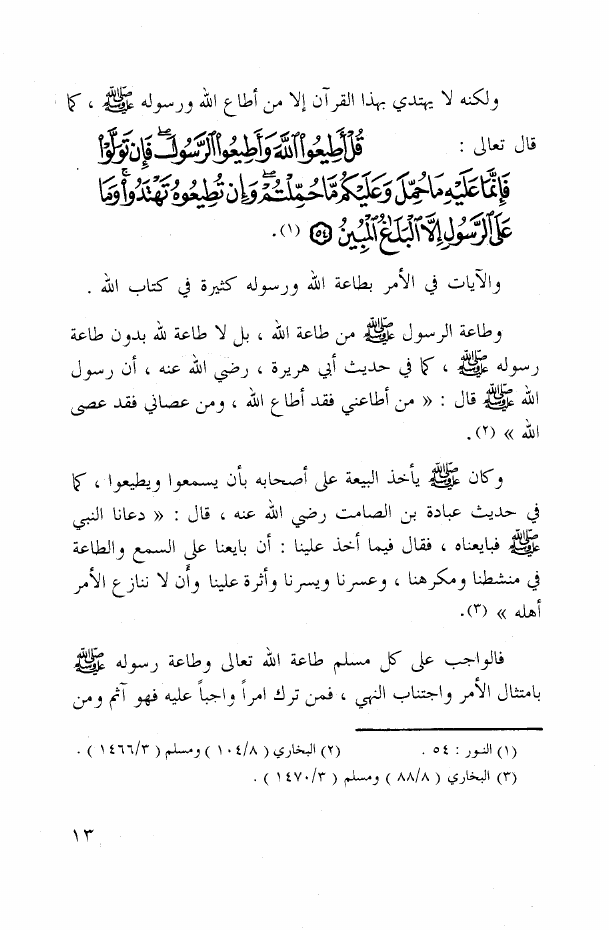 ولكنه لا يهتدي بهذا القرآن إلا من أطاع الله ورسوله ﷺ ، كما
قال تعالى : قُلْ أَطِيعُوا۟ ٱللَّهَ وَأَطِيعُوا۟ ٱلرَّسُولَ ۖ فَإِن تَوَلَّوْا۟
فَإِنَّمَا عَلَيْهِ مَا حُمِّلَ وَعَلَيْكُم مَّا حُمِّلْتُمْ ۖ وَإِن تُطِيعُوهُ تَهْتَدُوا۟ ۚ وَمَا
عَلَى ٱلرَّسُولِ إِلَّا ٱلْبَلَٰغُ ٱلْمُبِينُ ٥٤ (١).
والآيات في الأمر بطاعة الله ورسوله كثيرة في كتاب الله .
وطاعة الرسول ﷺ من طاعة الله ، بل لا طاعة لله بدون طاعة
رسوله ﷺ ، كما في حديث أبي هريرة ، رضي الله عنه ، أن رسول
الله ﷺ قال : « من أطاعني فقد أطاع الله ، ومن عصاني فقد عصى
الله » (٢).
وكان ﷺ يأخذ البيعة على أصحابه بأن يسمعوا ويطيعوا ، كما
في حديث عبادة بن الصامت رضي الله عنه ، قال : « دعانا النبي
ﷺ فبايعناه ، فقال فيما أخذ علينا : أن بايعنا على السمع والطاعة
في منشطنا ومكرهنا ، وعسرنا ويسرنا وأثرة علينا وأن لا ننازع الأمر
أهله » (٣).
فالواجب على كل مسلم طاعة الله تعالى وطاعة رسوله ﷺ
بامتثال الأمر واجتناب النهي ، فمن ترك امراً واجباً عليه فهو آثم ومن
(١) النور : ٥٤ . (٢) البخاري ( ١٠٤/٨ ) ومسلم ( ١٤٦٦/٣ ) .
(٣) البخاري ( ٨٨/٨ ) ومسلم ( ١٤٧٠/٣ ) .
١٣